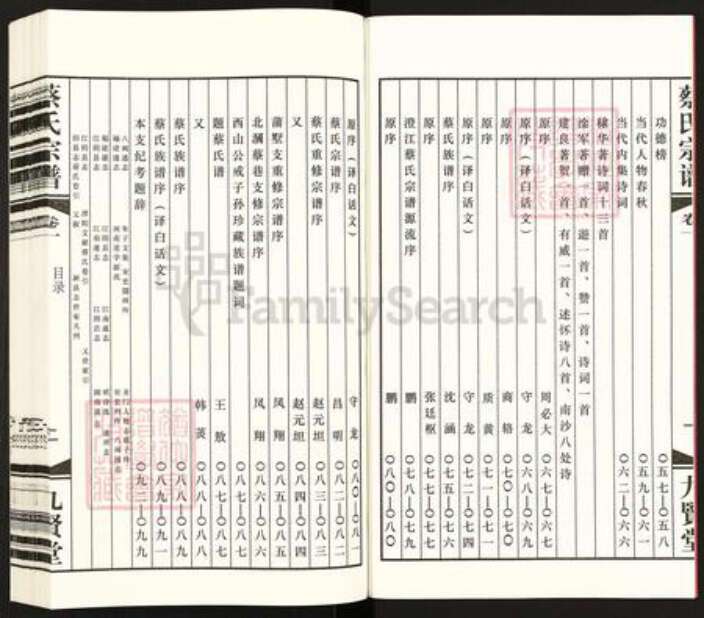 蔡氏宗谱
卷一
九贤堂
功德榜 〇五七—〇五八
当代人物春秋 〇五九—〇六一
当代内集诗词 〇六二—〇六六
棣华著诗词十三首
淦军著赠一首、遊一首、赞一首、诗词一首
建良著贺一首、有威一首、述怀诗八首、南沙八处诗
原序 周必大 〇六七—〇六七
原序（译白话文） 守龙 〇六八—〇六九
原序 商辂 〇七〇—〇七〇
原序 质黄 〇七一—〇七一
原序（译白话文） 守龙 〇七二—〇七四
蔡氏族谱序 沈涵 〇七五—〇七六
原序 张廷枢 〇七七—〇七七
澄江蔡氏宗谱源流序 〇七八—〇七九
原序 鹏 〇八〇—〇八〇
原序（译白话文） 守龙 〇八一—〇八一
蔡氏宗谱序 昌明 〇八二—〇八二
蔡氏重修宗谱序 赵元坦 〇八三—〇八三
又 赵元坦 〇八四—〇八四
蒲墅支重修宗谱序 凤翔 〇八五—〇八五
北漍蔡巷支修宗谱序 凤翔 〇八六—〇八六
西山公戒子孙珍藏族谱题词 〇八七—〇八七
题蔡氏谱 王敖 〇八七—〇八七
又 韩菼 〇八八—〇八八
蔡氏族谱序 〇八八—〇八九
蔡氏族谱序（译白话文） 〇八九—〇九一
本支纪考题辞 〇九二—〇九九
蔡氏宗谱
卷一
目录
九贤堂
FamilySearch